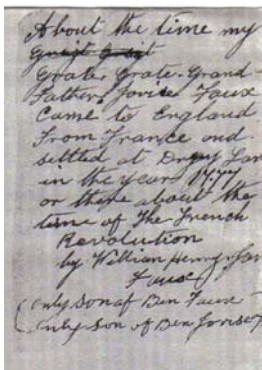 About the time my
Grate, Grate. Grand
Father, Jovise Faux
Came to England
From France and
settled at Drury Lan
in the year 1777
or there about the
time of The French
Revolution
by William Henry
Faux
(only Son of Ben Faux
(only Son of Ben